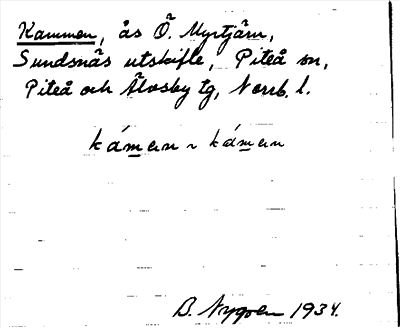 Kammen, ås Ö. Myrtjärn,
Sundsnäs utskifte, Piteå sn,
Piteå och Älvsby tg, Norrb. l.
káman ~ káman
B. Nygren 1934.